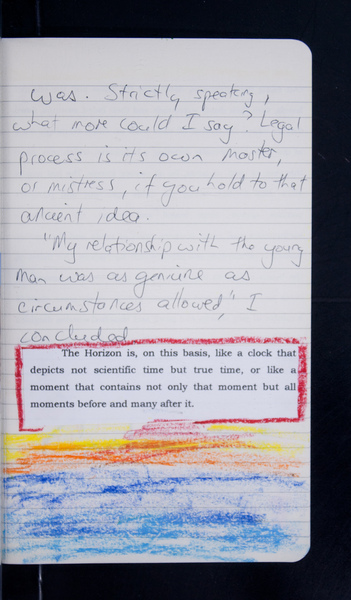 was. Strictly speaking,
what more could I say? Legal
process is its own master,
or mistress, if you hold to that
ancient idea.
"My relationship with the young
man was as genuine as
circumstances allowed," I
concluded
The Horizon is, on this basis, like a clock that
depicts not scientific time but true time, or like a
moment that contains not only that moment but all
moments before and many after it.